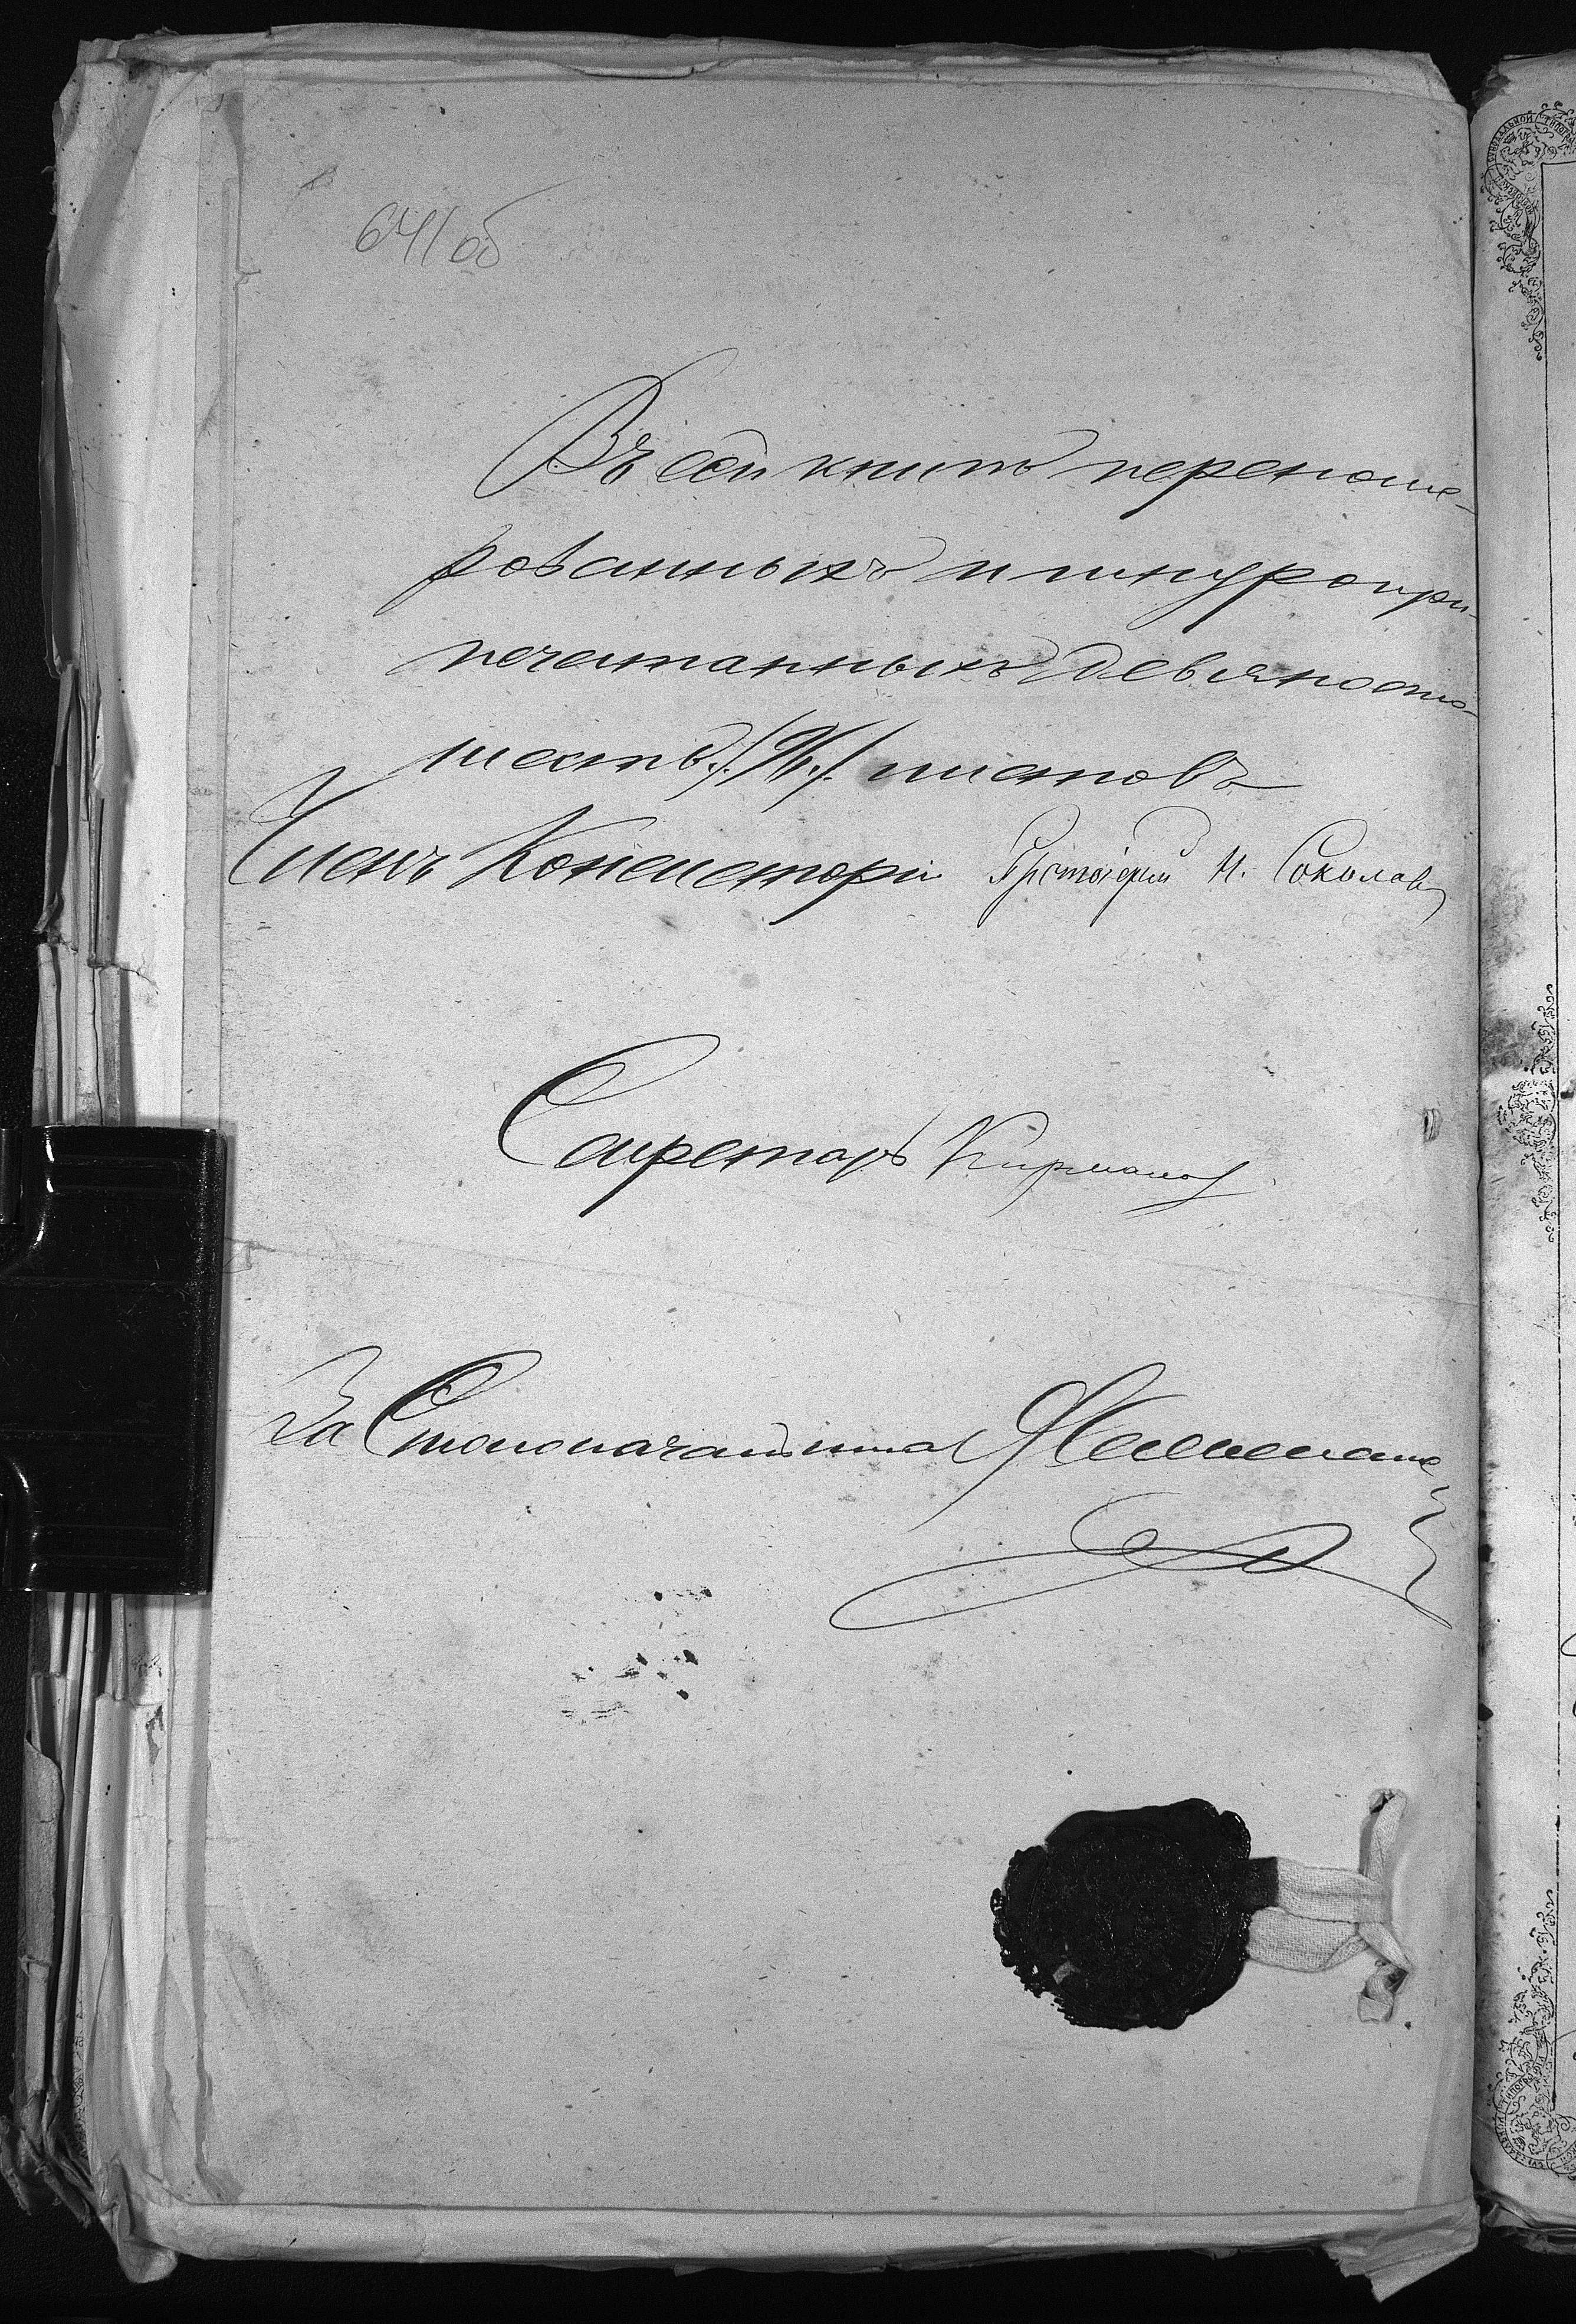 641об
Въ сей книгѣ перено̄ме-
рованныхъ и шнуропри-
печатанныхъ девяносто-
шесть /.96./ листовъ
Членъ Консисторіи Протоіерей Н. Соколовъ
Секретарь
За Столоначальника